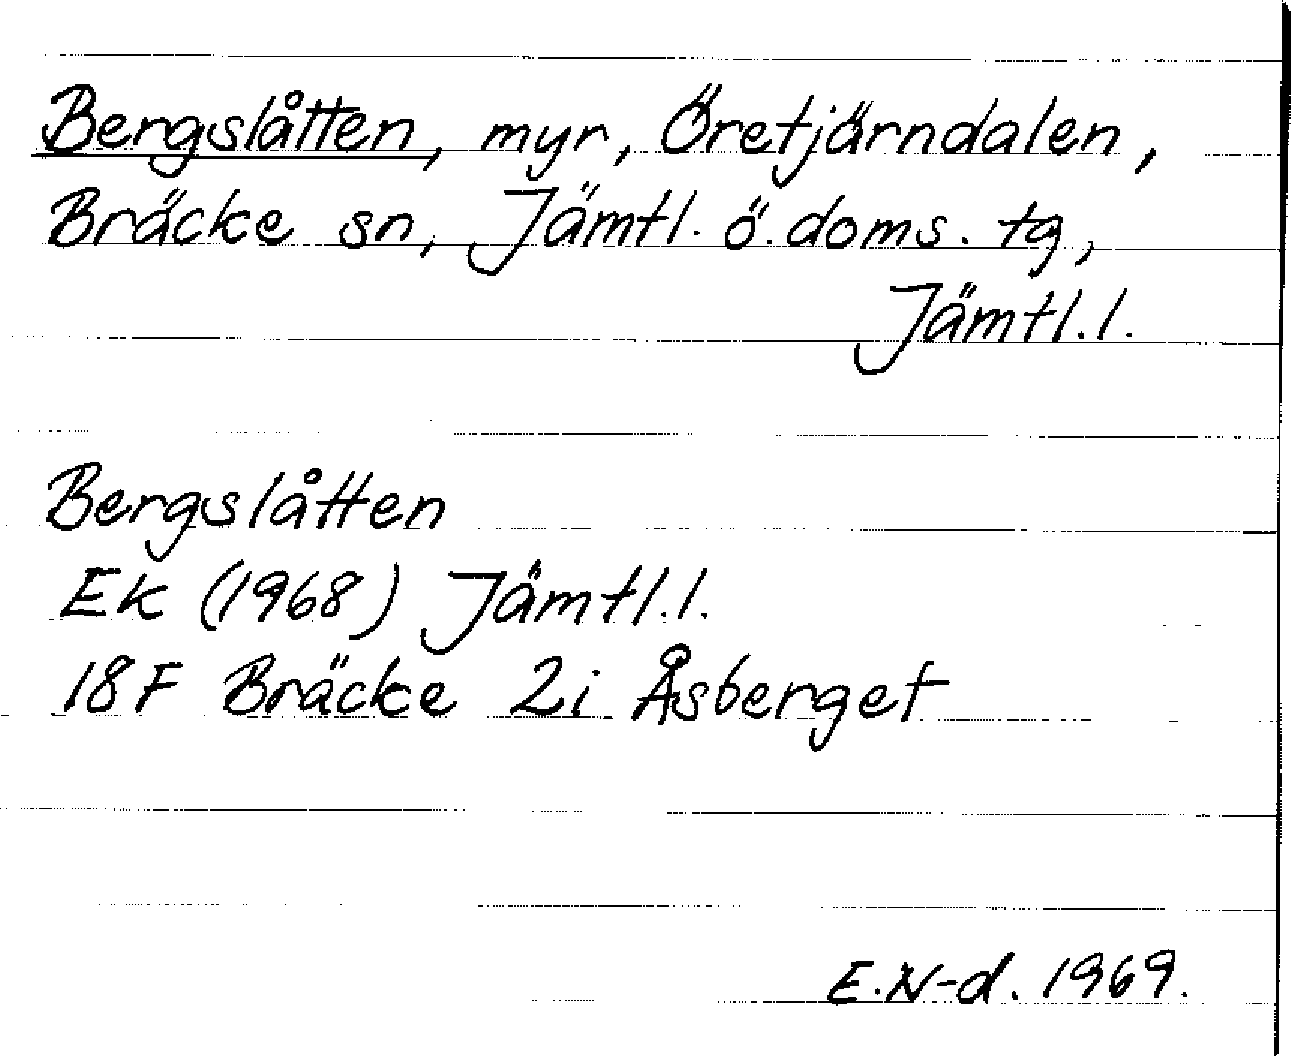 Bergslåtten, myr, Öretjärndalen,
Bräcke sn, Jämtl. ö. doms. tg,
Jämtl. l.
Bergslåtten
EK (1968) Jämtl. l.
18F Bräcke 2i Åsberget
E. N-d. 1969.